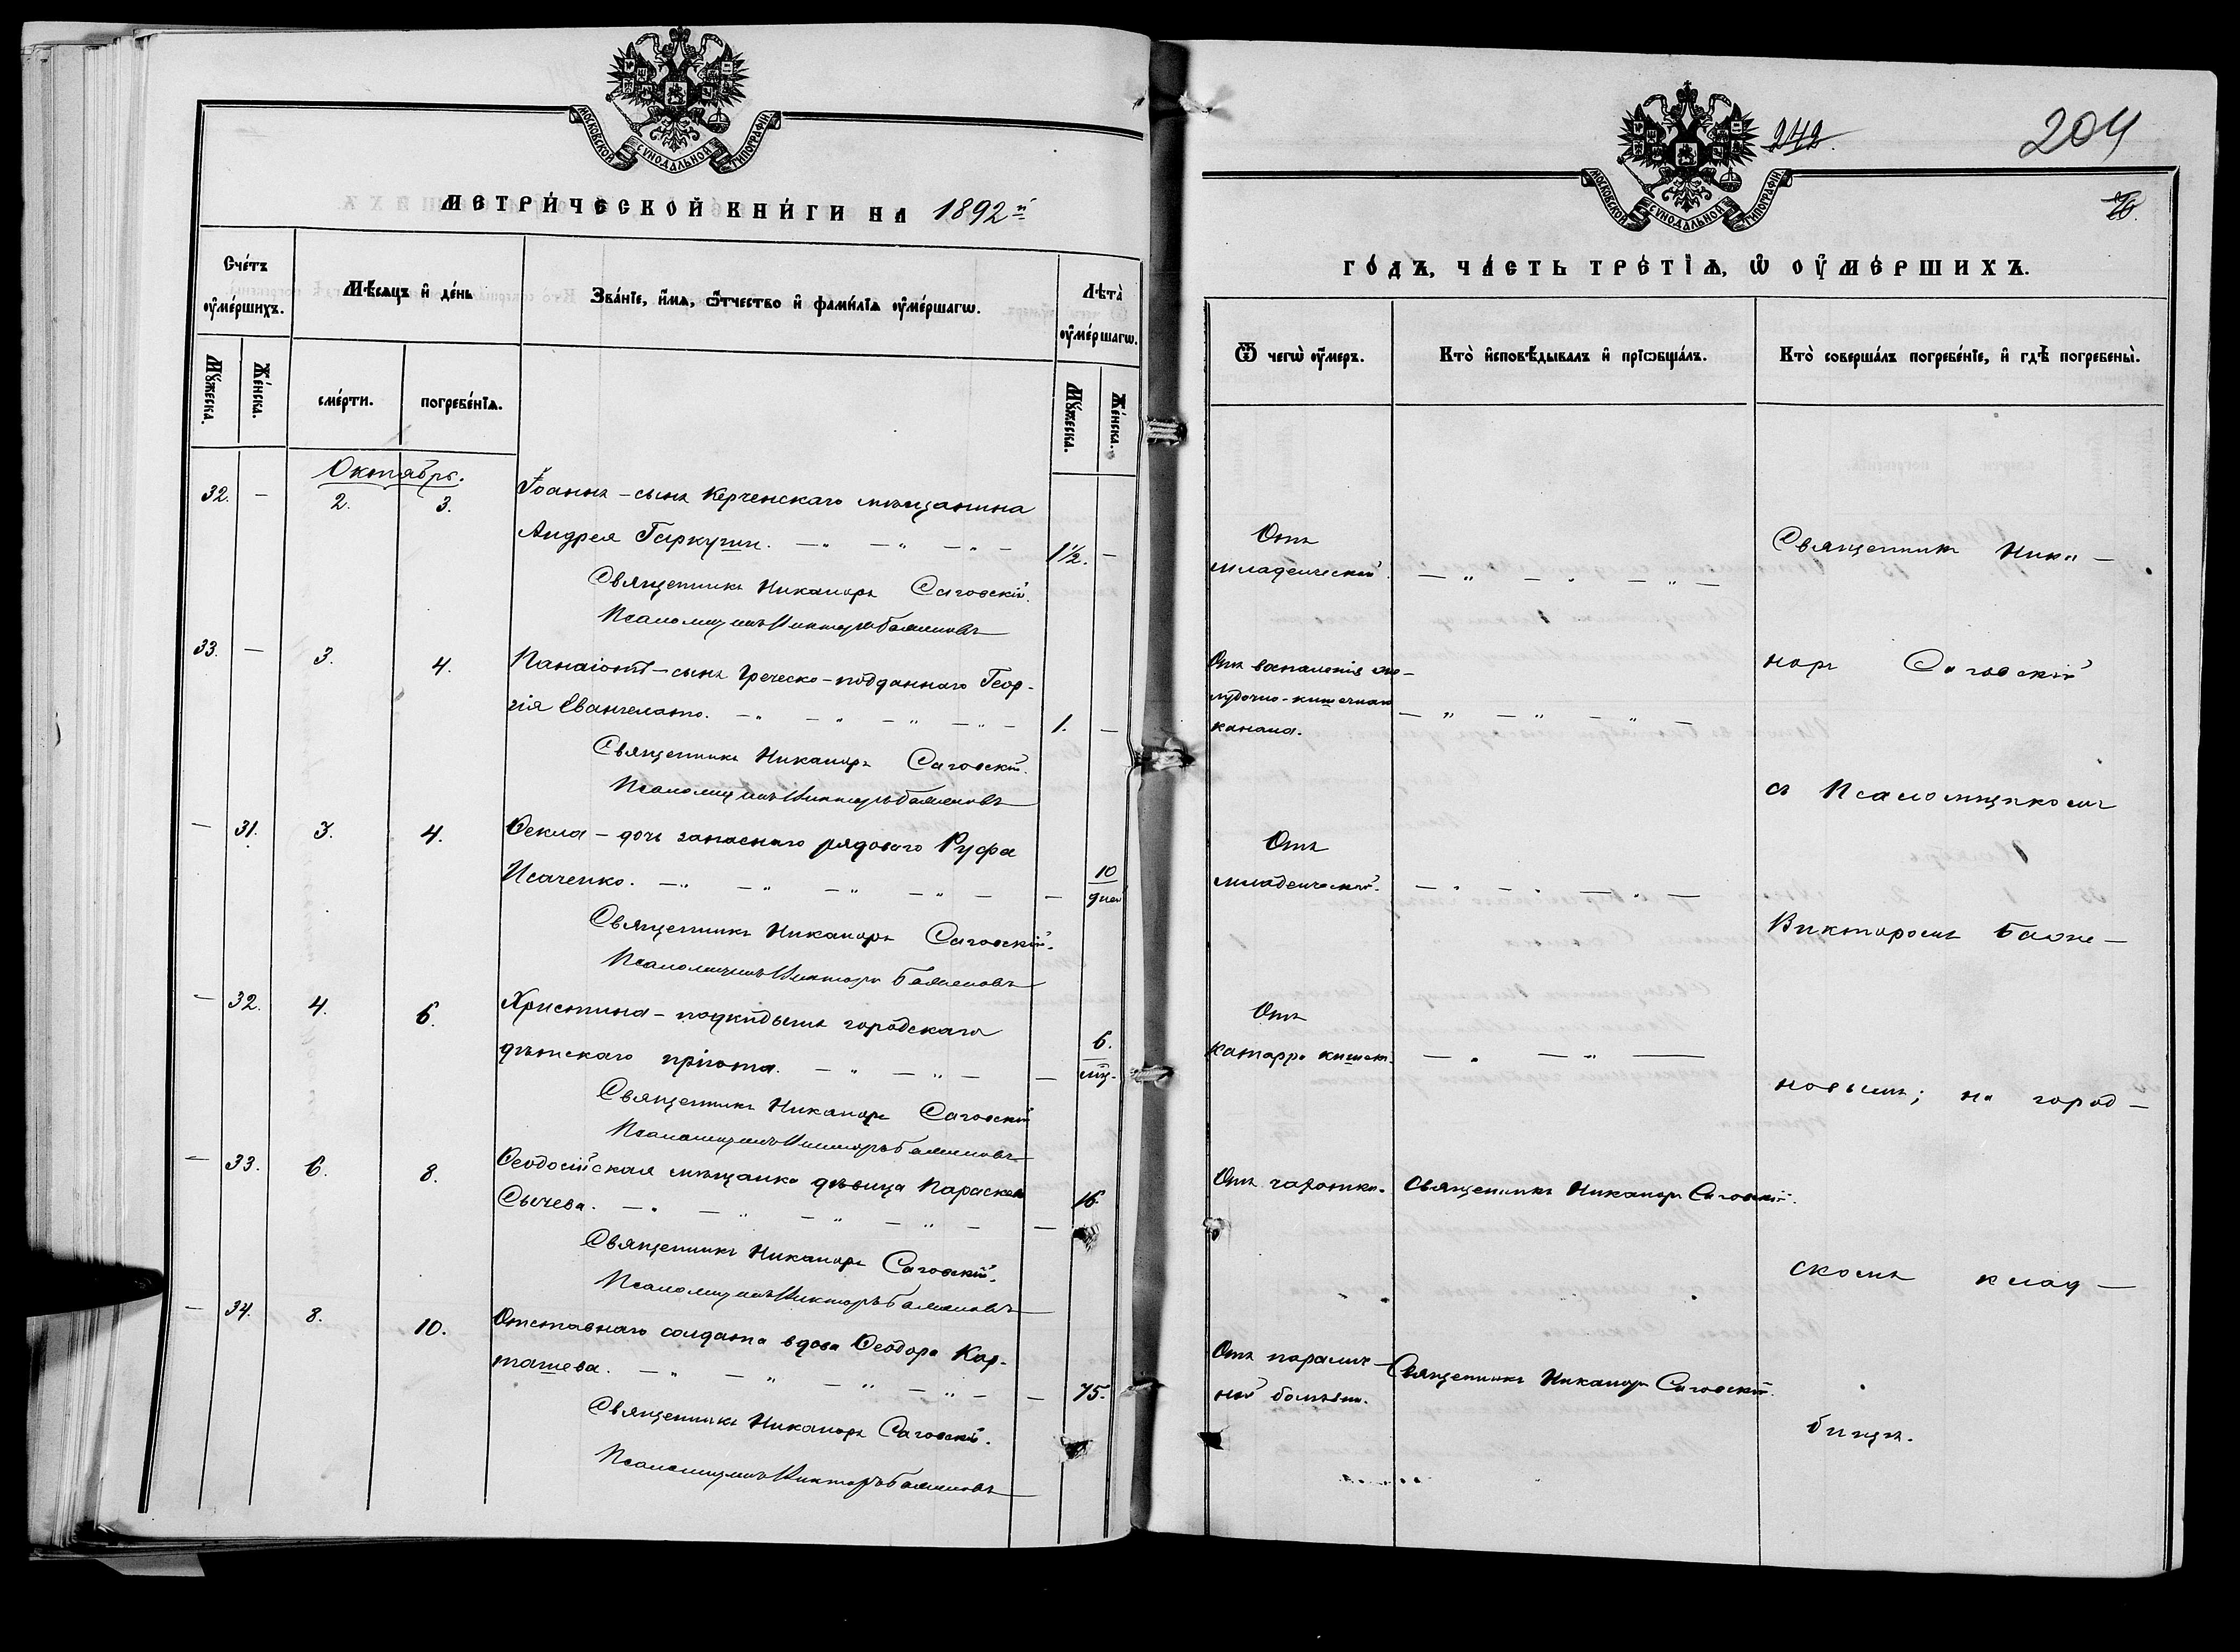 МОСКОВСКОЙ СѴНОДАЛЬНОЙ ТИПОГРАФІИ
МЕТРИ́ЧЕСКОЙ КНИ́ГИ НА 1892й
Сче́тъ ᲂу҆ме́ршихъ.
Мѣ́сяцъ и҆ де́нь
Зва́нїе, и҆́мѧ, ѻ҆́тчество и҆ фами́лїѧ ᲂу҆ме́ршагѡ.
Лѣта̀ ᲂу҆ме́ршагѡ.
Мꙋ́жеска.
Же́нска.
сме́рти.
погребе́нїѧ.
Мꙋ́жеска.
Же́нска.
Октябрь.
32. — 2. 3. Іоаннъ – сынъ Керченскаго мѣщанина
Андрея Гаркуши. 1½. —
Священникъ Никаноръ Саговскій.
Псаломщикъ Викторъ Баженовъ
33. — 3. 4. Панаіотъ – сынъ Греческо-подданнаго Геор-
гія Евангелато. 1. —
Священникъ Никаноръ Саговскій.
Псаломщикъ Викторъ Баженовъ
— 31. 3. 4. Ѳекла – дочь запаснаго рядоваго Руфа
Исаченко. — 10 дней
Священникъ Никаноръ Саговскій.
Псаломщикъ Викторъ Баженовъ
— 32. 4. 6. Христина – подкидышъ городскаго
дѣтскаго пріюта. — 6. мѣц.
Священникъ Никаноръ Саговскій
Псаломщикъ Викторъ Баженовъ
— 33. 6. 8. Ѳеодосійская мѣщанка дѣвица Параскева
Сычева. — 16.
Священникъ Никаноръ Саговскій.
Псаломщикъ Викторъ Баженовъ
— 34. 8. 10. Отставнаго солдата вдова Ѳеодора Кар-
ташева. — 75.
Священникъ Никаноръ Саговскій.
Псаломщикъ Викторъ Баженовъ
242.
204
МОСКОВСКОЙ СѴНОДАЛЬНОЙ ТИПОГРАФІИ
ГО́ДЪ, ЧА́СТЬ ТРЕ́ТЇѦ, Ѡ҆ ОУ҆МЕ́РШИХЪ.
Ѿ чегѡ̀ ᲂу҆́меръ.
Кто̀ и҆сповѣ́дывалъ и҆ прїѡбща́лъ.
Кто̀ соверша́лъ погребе́нїе, и҆ гдѣ̀ погребены̀.
Отъ
младенческой.
Священникъ Ника-
Отъ воспаленія же-
лудочно-кишечнаго
канала.
норъ Саговскій
съ Псаломщикомъ
Отъ
младенческой.
Викторомъ Баже-
Отъ
катарра кишекъ.
новымъ; на город-
Отъ чахотки. Священникъ Никаноръ Саговскій.
скомъ клад-
Отъ паралич-
ной болѣзни. Священникъ Никаноръ Саговскій.
бищѣ.